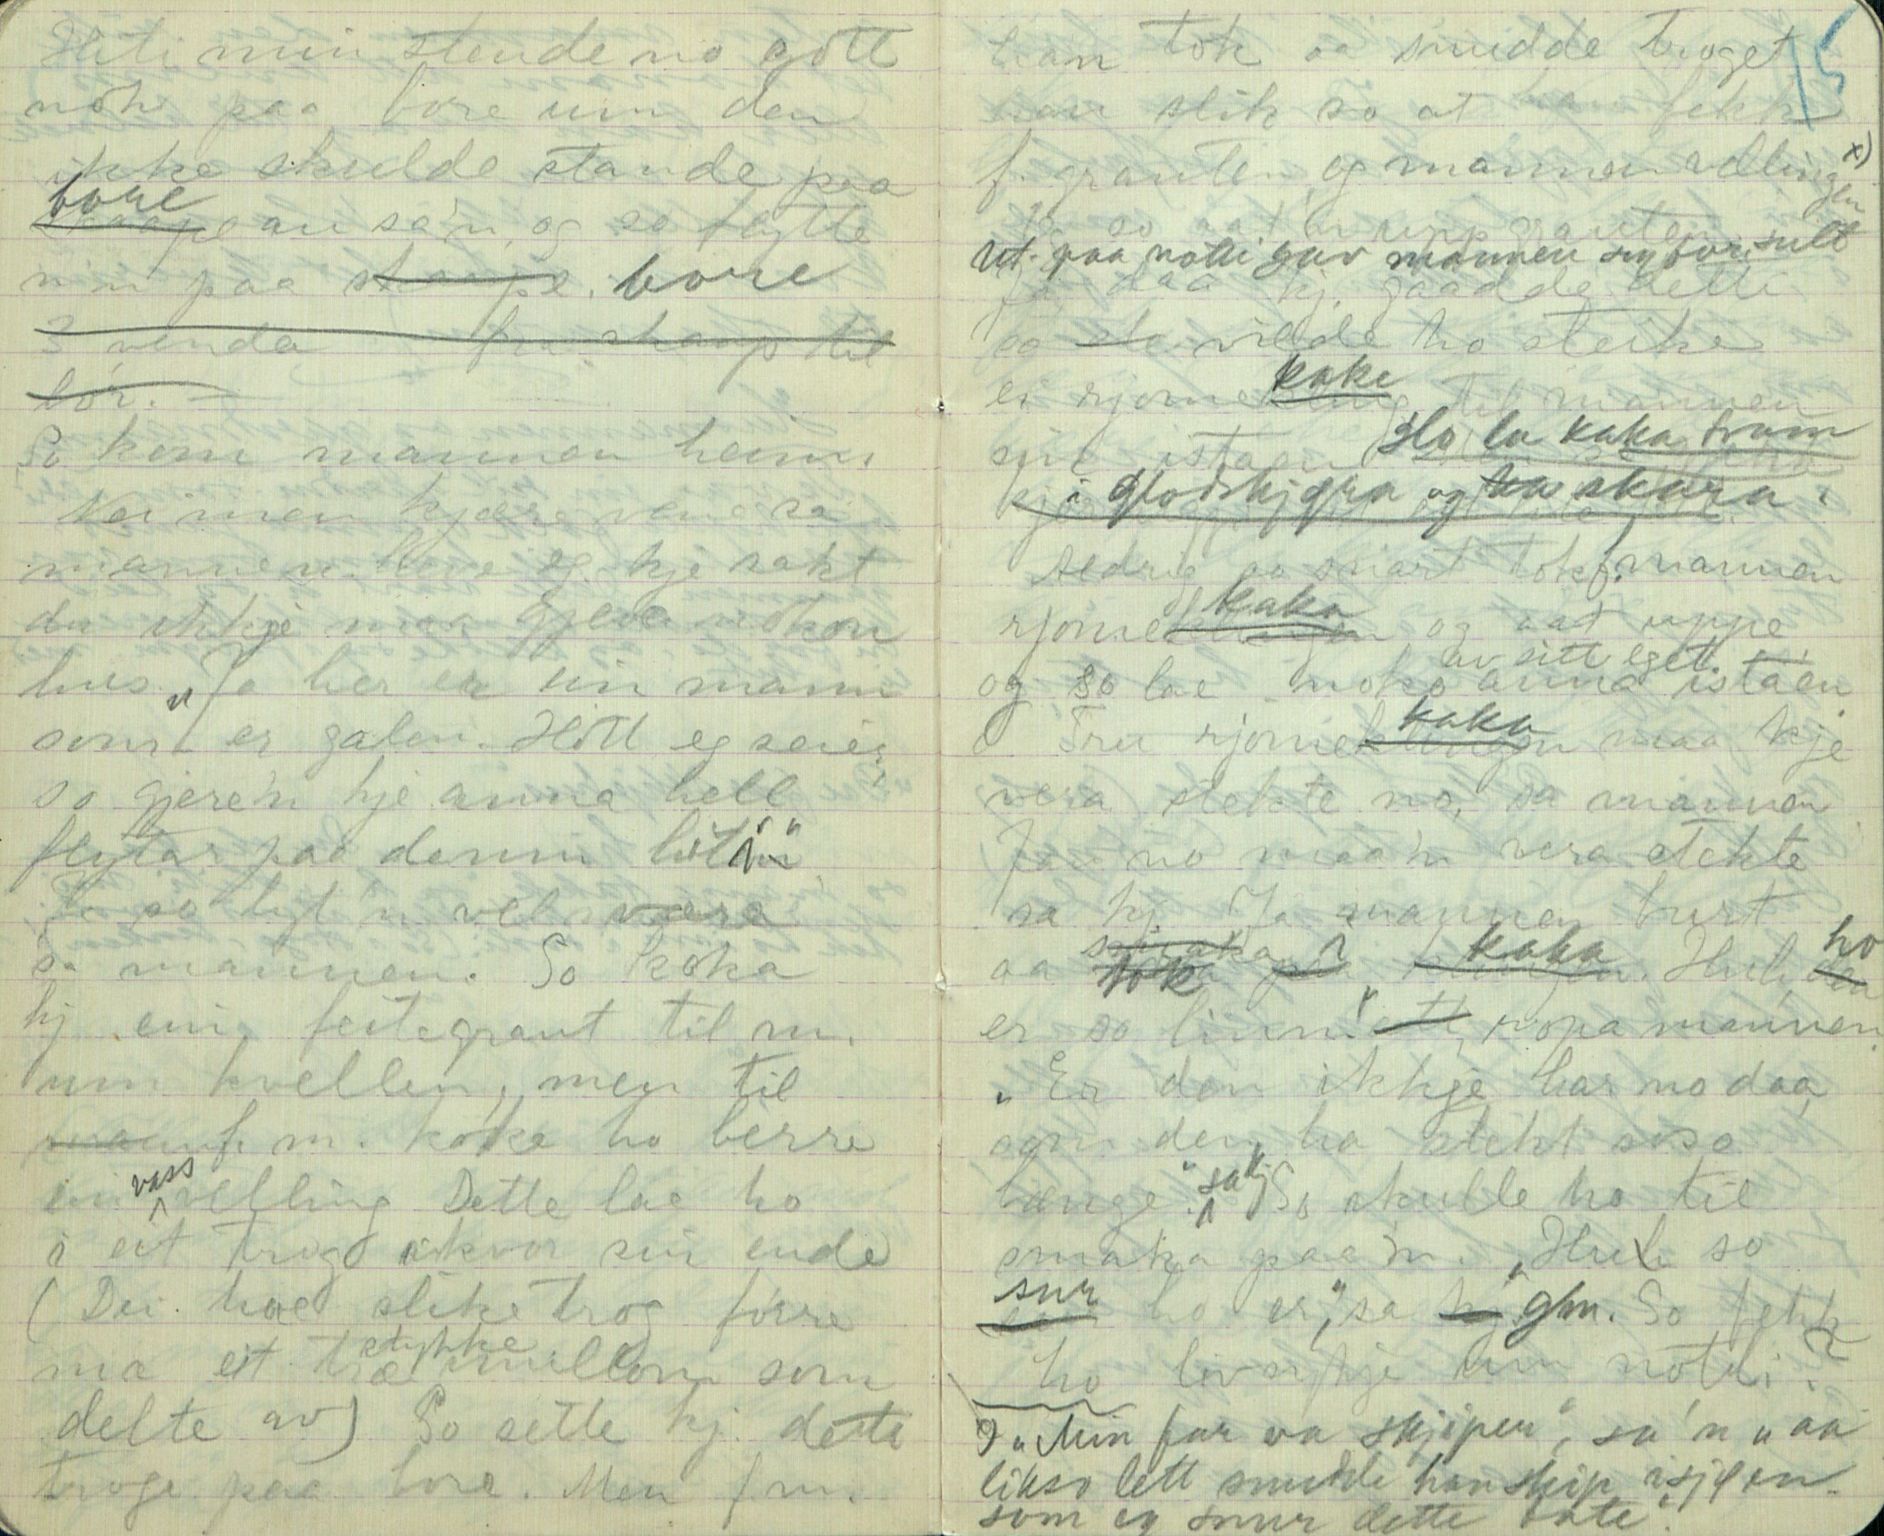 Hiti min stende no gott
nok paa bore um den
ikke skulde stande paa
bore
an sa'n, og so flytte
n'n paa skaape. bore
3 venda fra skaap til
bor.
So kom mannen heim.
Nei men kjære vene sa
mannen. Have eg kje sakt
du ikkje maa gjeva nokon
hus. "Ja her er ein mann
som er galen. Hott eg seier
so gjere'n kje anna hell
flytar paa denni hiti"
Ja so lyt'n vel vera
sa mannen. So koka
kj ein feitegraut til m.
um kvellen, men til
f m. koke ho berre
ein vassvelling Dette lae ho
i eit trog i kvor sin ende
(Dei hae slike trog førre
ma eit træstykke imillom som
delte av) So sette kj. dette
troge paa bore. Men f m.
15
han tok aa snudde troget
han slik so at han fekk
f. grauten og mannen vellingen x)
so aat'n upp grauten
Ut paa notti gav mannen seg for sult
Ja, daa kj. gaadde detti
so vilde ho steike
ei rjomekake til mannen
sin istaden Ho la kaka fram
i glodskjæra og skara.
Aldrig so snart tok f. mannen
rjomekaka og aat uppe
og so lae noko anna av sitt eget istaen
Tru rjomekaka maa kje
vera stekte no, sa mannen
Jau no maa'n vera stekte
sa kj. Ja mannen burt
aa smaka tok paa kaka. Huh, ho
er so linn" ropa mannen.
"Er den ikkje har no daa,
som den ha stekt so
længe" sa kj So skulle ho til
smaka paa'n. "Huh so
sur ho er", sa kj glm. So fekk
ho liv'n kje um notti.
x) "Min far va skjiper", sa'n "aa
likso lett snudde han skip i sjøen
som eg snur dette fate".